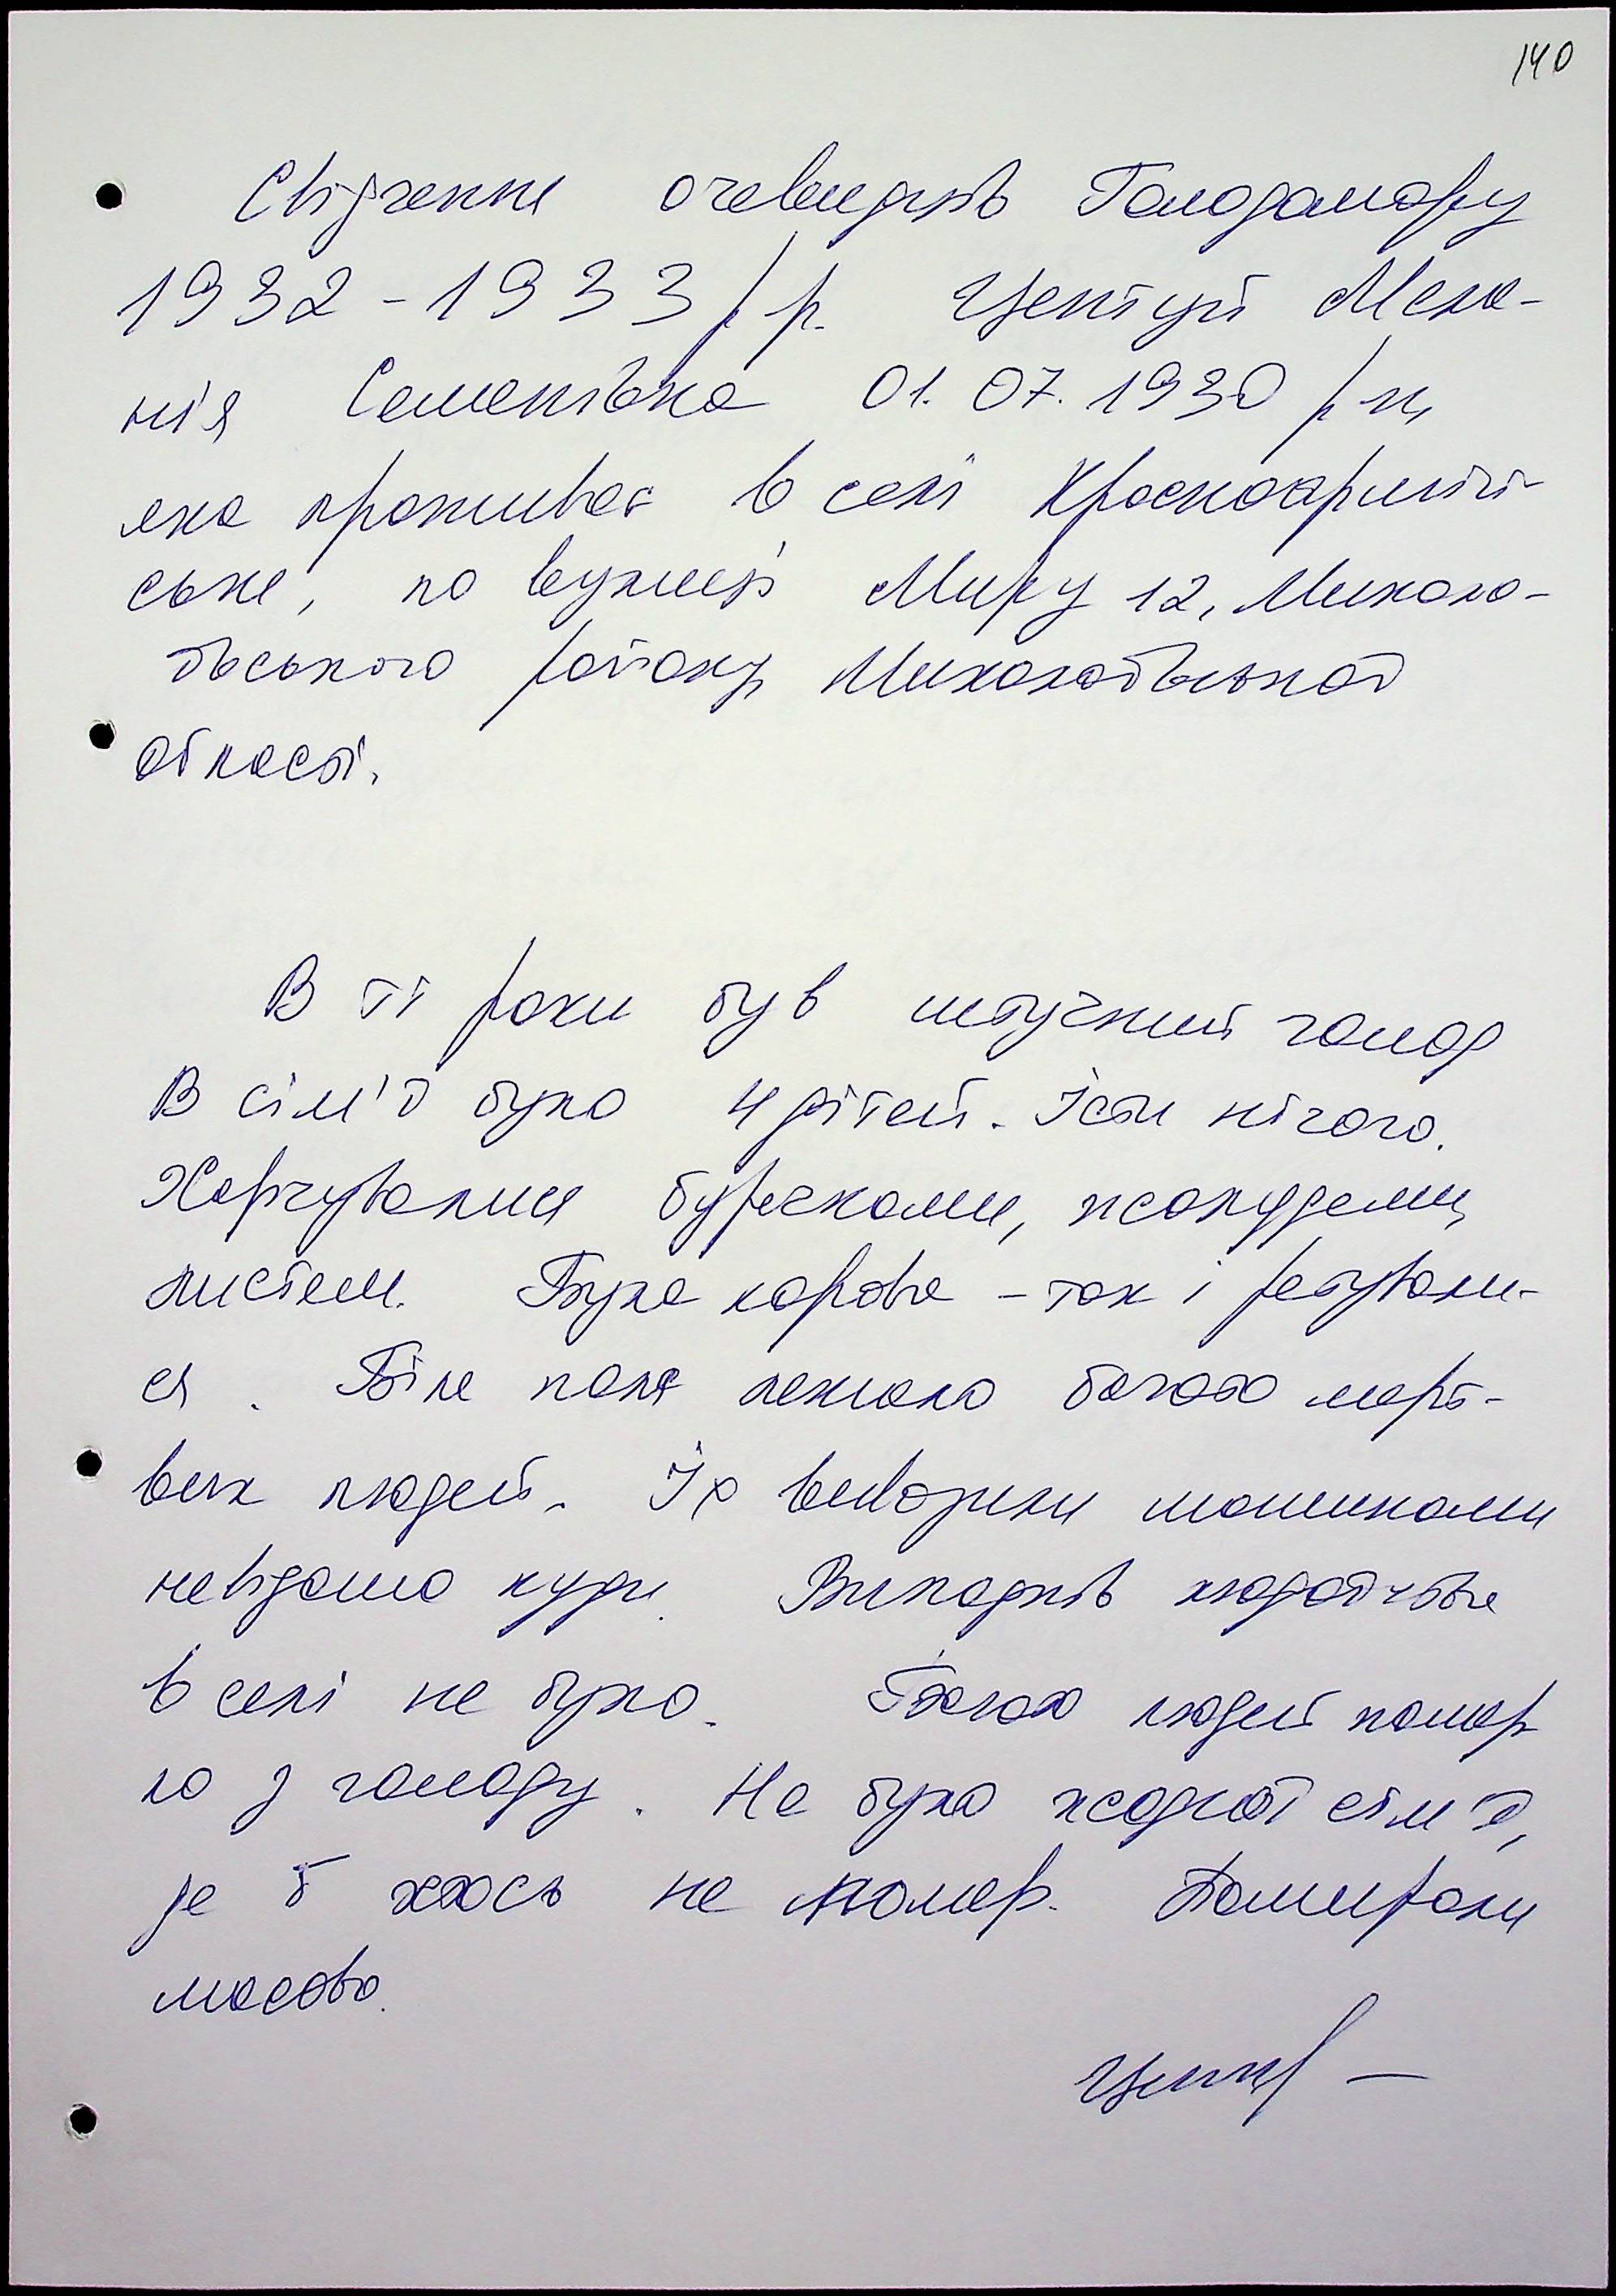 140
Свідчення очевидців Голодомору
1932-1933 р.р. Мела-
нія Семенівна 01.07.1930 р.н,
яка проживає в селі Красноармій-
ське, по вулиці Миру 12, Микола-
ївського району Миколаївської
області.
В ті роки був штучний голод
В сім'ї було 4 дітей. Їсти нічого.
Харчувалися бурячками, жолудями,
листям. Була корова - так і рятували-
ся. Біля поля лежало багато мерт-
вих людей. Їх вивозили машинами
невідомо куди. Випадків людоїдства
в селі не було. Багато людей помер
ло з голоду. Не було жодної сім'ї,
де б хтось не помер. Помирали
масово.